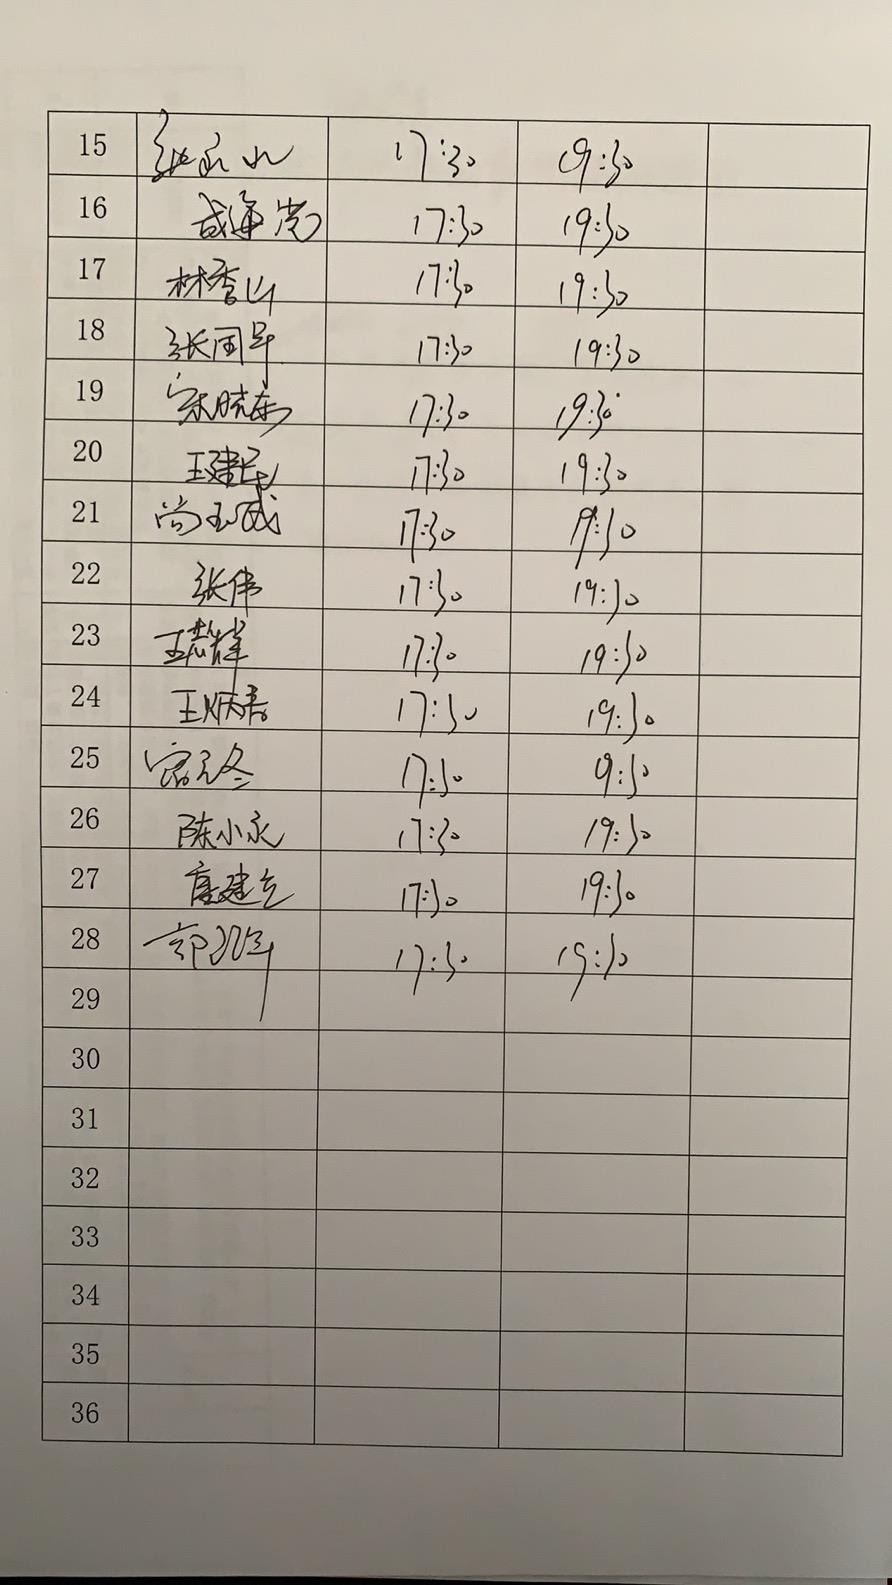 15 17:30 19:30
16 成海岗 17:30 19:30
17 林香山 17:30 19:30
18 张国华 17:30 19:30
19 宋晓东 17:30 19:30
20 王建民 17:30 19:30
21 尚玉成 17:30 19:30
22 张伟 17:30 19:30
23 王志辉 17:30 19:30
24 王炳春 17:30 19:30
25 17:30 9:30
26 陈小永 17:30 19:30
27 唐建立 17:30 19:30
28 17:30 19:30
29
30
31
32
33
34
35
36